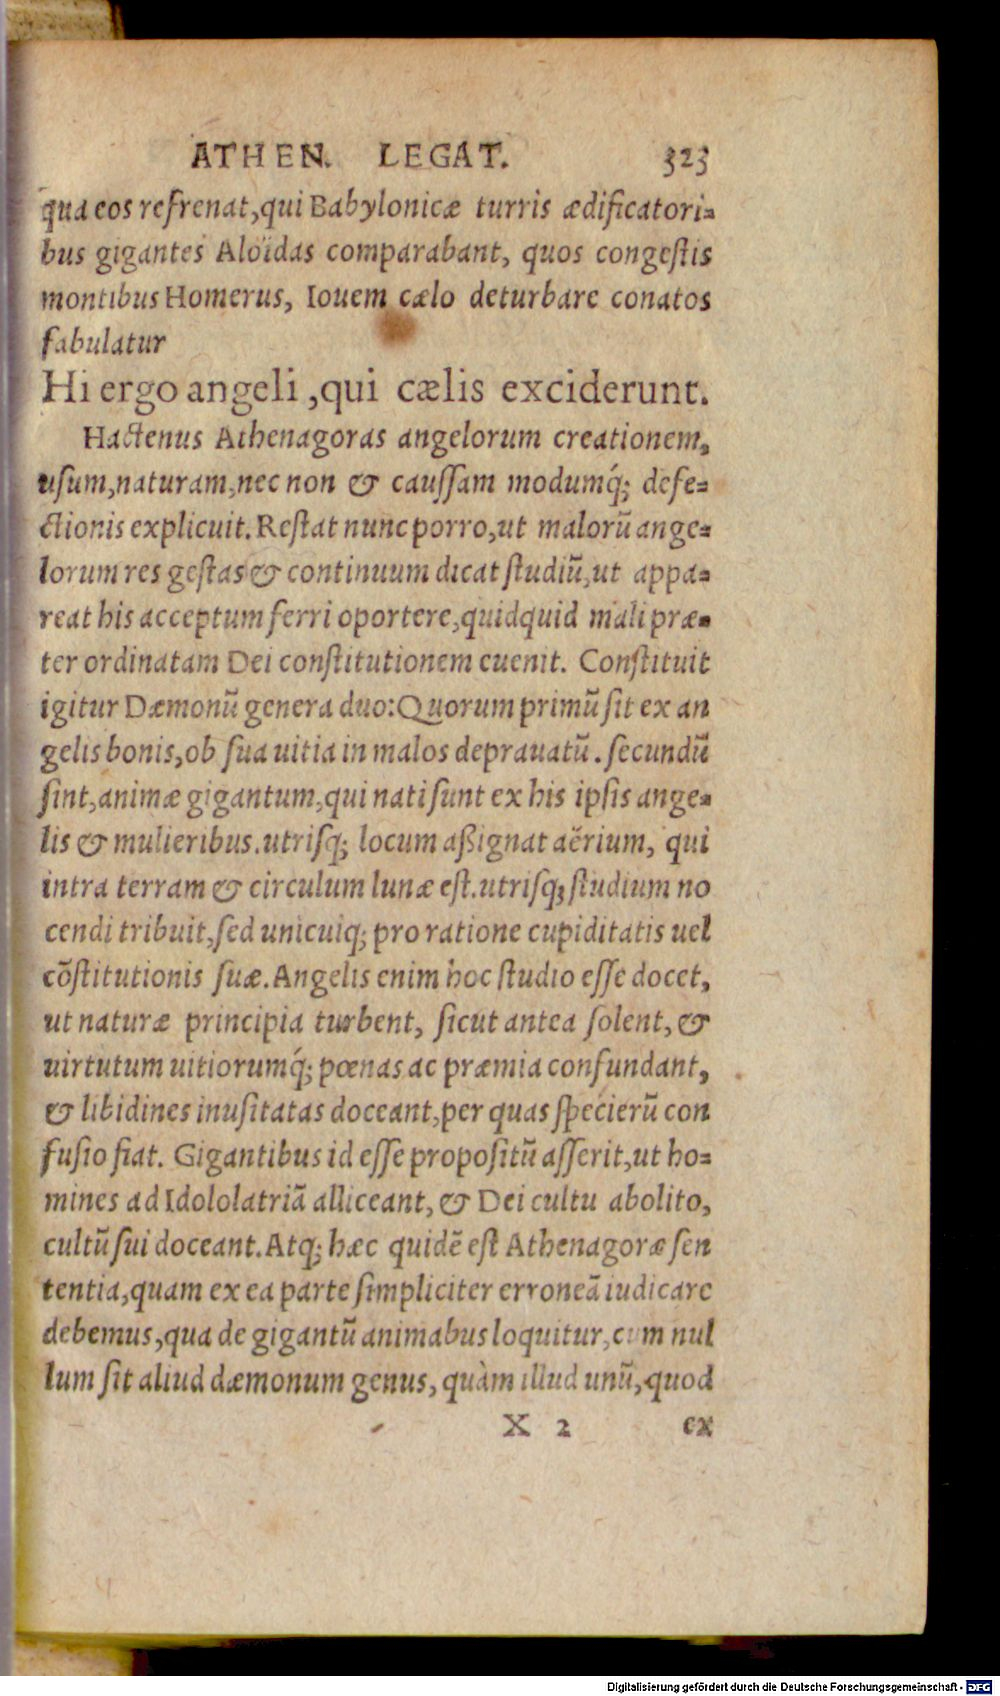 ATHEN. LEGAT. 323
qua eos refrenat, qui Babylonicæ turris ædificatori=
bus gigantes Aloidas comparabant, quos congeſtis
montibus Homerus, Iouem cælo deturbare conatos
fabulatur
Hi ergo angeli, qui cælis exciderunt.
Hactenus Athenagoras angelorum creationem,
uſum, naturam, nec non & cauſſam modumq́; defe=
ctionis explicuit. Reſtat nunc porro, ut malorũ ange=
lorum res geſtas & continuum dicat ſtudiũ, ut appa=
reat his acceptum ferri oportere, quidquid mali præ=
ter ordinatam Dei conſtitutionem euenit. Conſtituit
igitur Dæmonũ genera duo: Quorum primũ ſit ex an
gelis bonis, ob ſua uitia in malos deprauatũ. ſecundũ
ſint, animæ gigantum, qui nati ſunt ex his ipſis ange=
lis & mulieribus. utriſq; locum aßignat aërium, qui
intra terram & circulum lunæ eſt. utriſq; ſtudium no
cendi tribuit, ſed unicuiq; pro ratione cupiditatis uel
cõſtitutionis ſuæ. Angelis enim hoc ſtudio eſſe docet,
ut naturæ principia turbent, ſicut antea ſolent, &
uirtutum uitiorumq́; pœnas ac præmia confundant,
& libidines inuſitatas doceant, per quas ſpecierũ con
fuſio fiat. Gigantibus id eſſe propoſitũ aſſerit, ut ho=
mines ad Idololatriã alliceant, & Dei cultu abolito,
cultũ ſui doceant. Atq; hæc quidẽ eſt Athenagoræ ſen
tentia, quam ex ea parte ſimpliciter erroneã iudicare
debemus, qua de gigantũ animabus loquitur, cum nul
lum ſit aliud dæmonum genus, quàm illud unũ, quod
X 2 ex
Digitalisierung gefördert durch die Deutsche Forschungsgemeinschaft - DFG